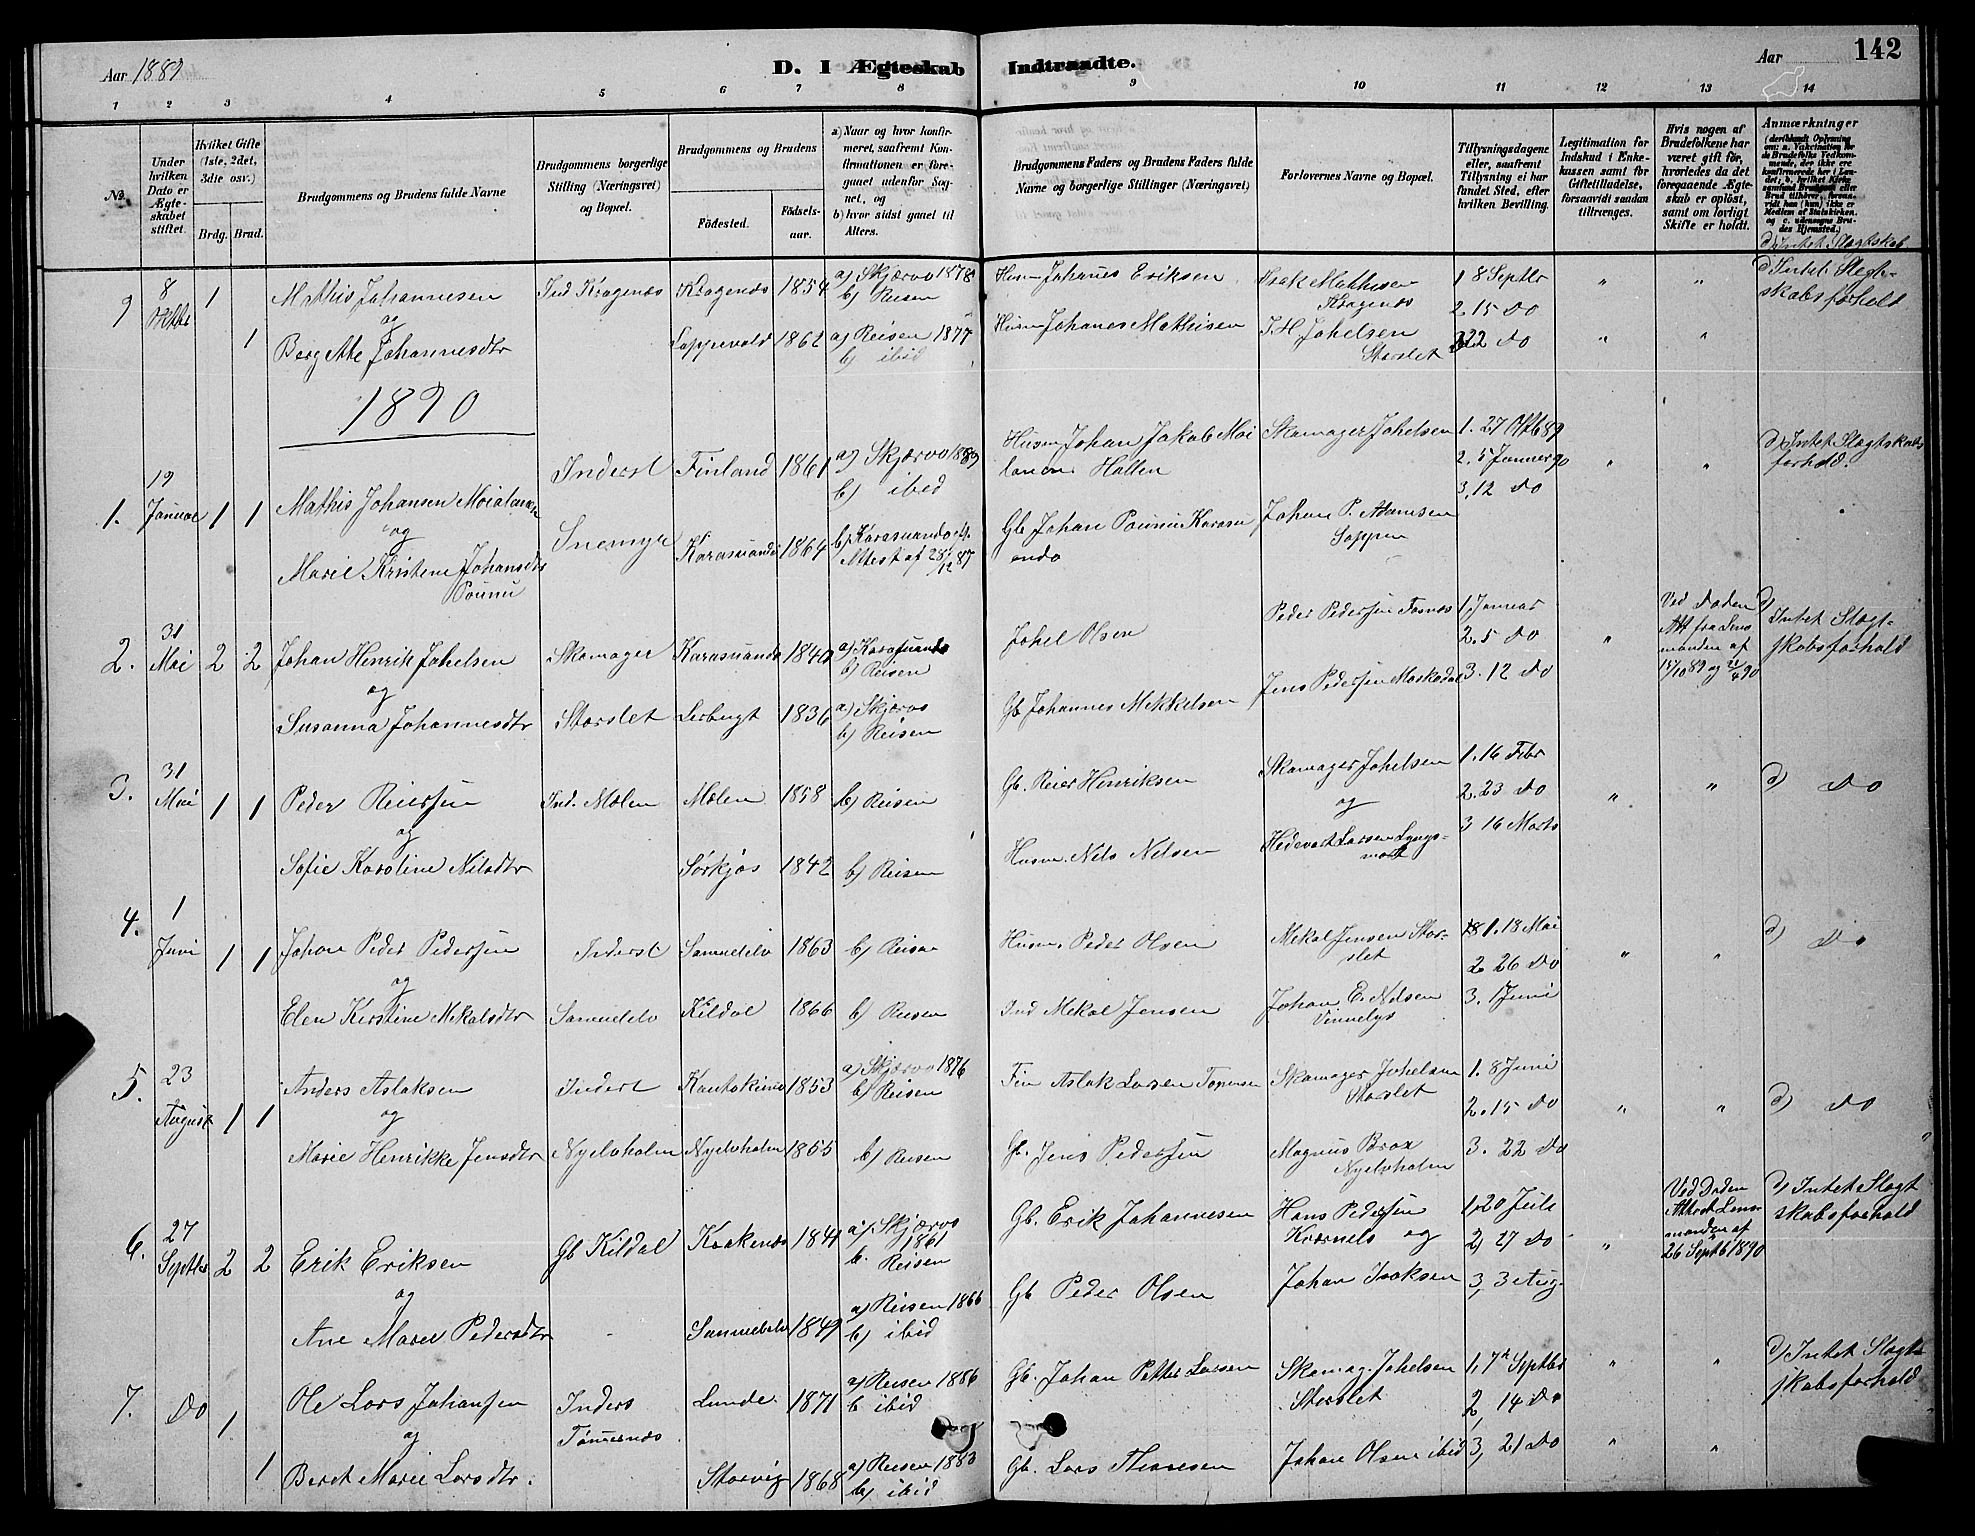 Aar 1889
D. I Ægteskab Indtraadte.
Aar
142
1 2 3 4 5 6 7 8 9 10 11 12 13 14
№
Under hvilken Dato er Ægteskabet stiftet.
Hvilket Gifte (1ste, 2det, 3die osv.)
Brdg. Brud.
Brudgommens og Brudens fulde Navne
Brudgommens borgerlige Stilling (Næringsvei) og Bopæl.
Brudgommens og Brudens
Födested.
Födselsaar.
a) Naar og hvor konfirmeret, saafremt Konfirmationen er foregaaet udenfor Sognet, og
b) hvor sidst gaaet til Alters.
Brudgommens Faders og Brudens Faders fulde Navne og borgerlige Stillinger (Næringsvei)
Forlovernes Navne og Bopæl.
Tillysningsdagene eller, saafremt Tillysning ei har fundet Sted, efter hvilken Bevilling.
Legitimation for Indskud i Enkekassen samt for Giftetilladelse, forsaavidt saadan tiltrænges.
Hvis nogen af Brudefolkene har været gift för, hvorledes da det foregaaende Ægteskab er oplöst, samt om lovligt Skifte er holdt.
Anmærkninger
d) Intet Slagtskab
9 8 Oktbr 1 Mathis Johannesen Ind Kragenæs Kragenæs 1854 a) Skjærvø 1878 b) Reisen Husm Johanes Eriksen Isak Mathisen Kragenæs 1 8 Septbr " " d Intet Slegtskabsforhold
og 2. 15 Do
1 Berg Ate Johannesdtr 1862 a) Reisen 1877 b) ibid Husm Johanes Mathisen J. H. Johelsen Storslet 3 22 Do " "
1890
1. 19 Januar 1 1 Mathis Johansen Inderst Finland 1861 a) Skjærvø 1889 b) ibid Husm Johan Jakob Skomager Johelsen 1. 27 Oktb 89 " " d) Intet Slagtskabsforhold.
og 2. 5 Januar 90
Marie Kristine Johansdtr Pounu Snemyr Karasuando 1864 Attest af 28/12 87 Gb Johan Pounu Karasuando Johan P. Adamsen Sappen 3. 12 Do
2. 31 Mai 2 2 Johan Henrik Johelsen Skomager Karasuando a) Karasuando b) Reisen Johel Olsen Peder Pedersen 1. Januar " Ved Døden d) Intet Slagtskabsforhold
og 2. 5 Do
Susanna Johannesdtr Storslet Lerbugt 1836 a) Skjærvø b) Reisen Gb Johannes Mikkelsen Jens Pedersen Maskedal 3. 12 Do
3. 31 Mai 1 1 Peder Reiersen Ind. Molen Molen 1858 b) Reisen Gb. Reier Henriksen Skomager Johelsen 1. 16 Febr " " d) Do
og og 2. 23 Do
Sofie Karoline Nilsdtr Sørkjos 1842 b) Reisen Husm. Nils Nilsen Hedevart Larsen Lyngsmark 3 16 Marts
4. 1 Juni 1 1 Johan Peder Pedersen Inderst Samuelelv 1863 b) Reisen Husm. Peder Olsen Mikal Jensen Storslet 1. 18 Mai " " d) Do
og 2 26 Do
Elen Kirstine Mikalsdtr Samuelelv Kildal 1866 b) Reisen Ind Mikal Jensen Johan E. Nilsen 3. 1 Juni
5. 23 August 1 1 Anders Aslaksen Inderst Kautokeino 1853 a) Skjærvø 1876 b) Reisen Fin Aslak Larsen Skomager Johelsen Storslet 1. 8 Juni " " d) Do
og 2. 15 Do
Marie Henrikke Jensdtr Nyelvholm Nyelvholm 1855 b) Reisen Gb. Jens Pedersen Magnus Brox Nyelvholm 3. 22 Do
6. 27 Septbr 2 2 Erik Eriksen Gb Kildal 184 a) Skjærvø 1861 b. Reisen Gb. Erik Johannesen Hans Pedersen og 1. 20 Juli " Ved Døden Attest Lensmanden af 26 Septb 1890 d) Intet Slagtskabsforhold
og 2, 27 Do
Ane Marie Pedersdtr Samuelelv 1849 a) Reisen 1866 b) ibid Gb Peder Olsen Johan Isaksen 3, 3 Aug.
7. Do 1. Ole Lars Johansen Inders Lunde 1871 a) Reisen 1886 b ibid Gb. Johan Petter Larsen Skomag. Johelsen Storslet 1, 7 Septbr " " d) Intet Slagtskabsforhold
og 2, 14 Do
1 Beret Marie Larsdtr. Storvig 1868 a) Reisen 1883 b) ibid Gb. Lars Johan Olsen ibid 3, 21 Do " "